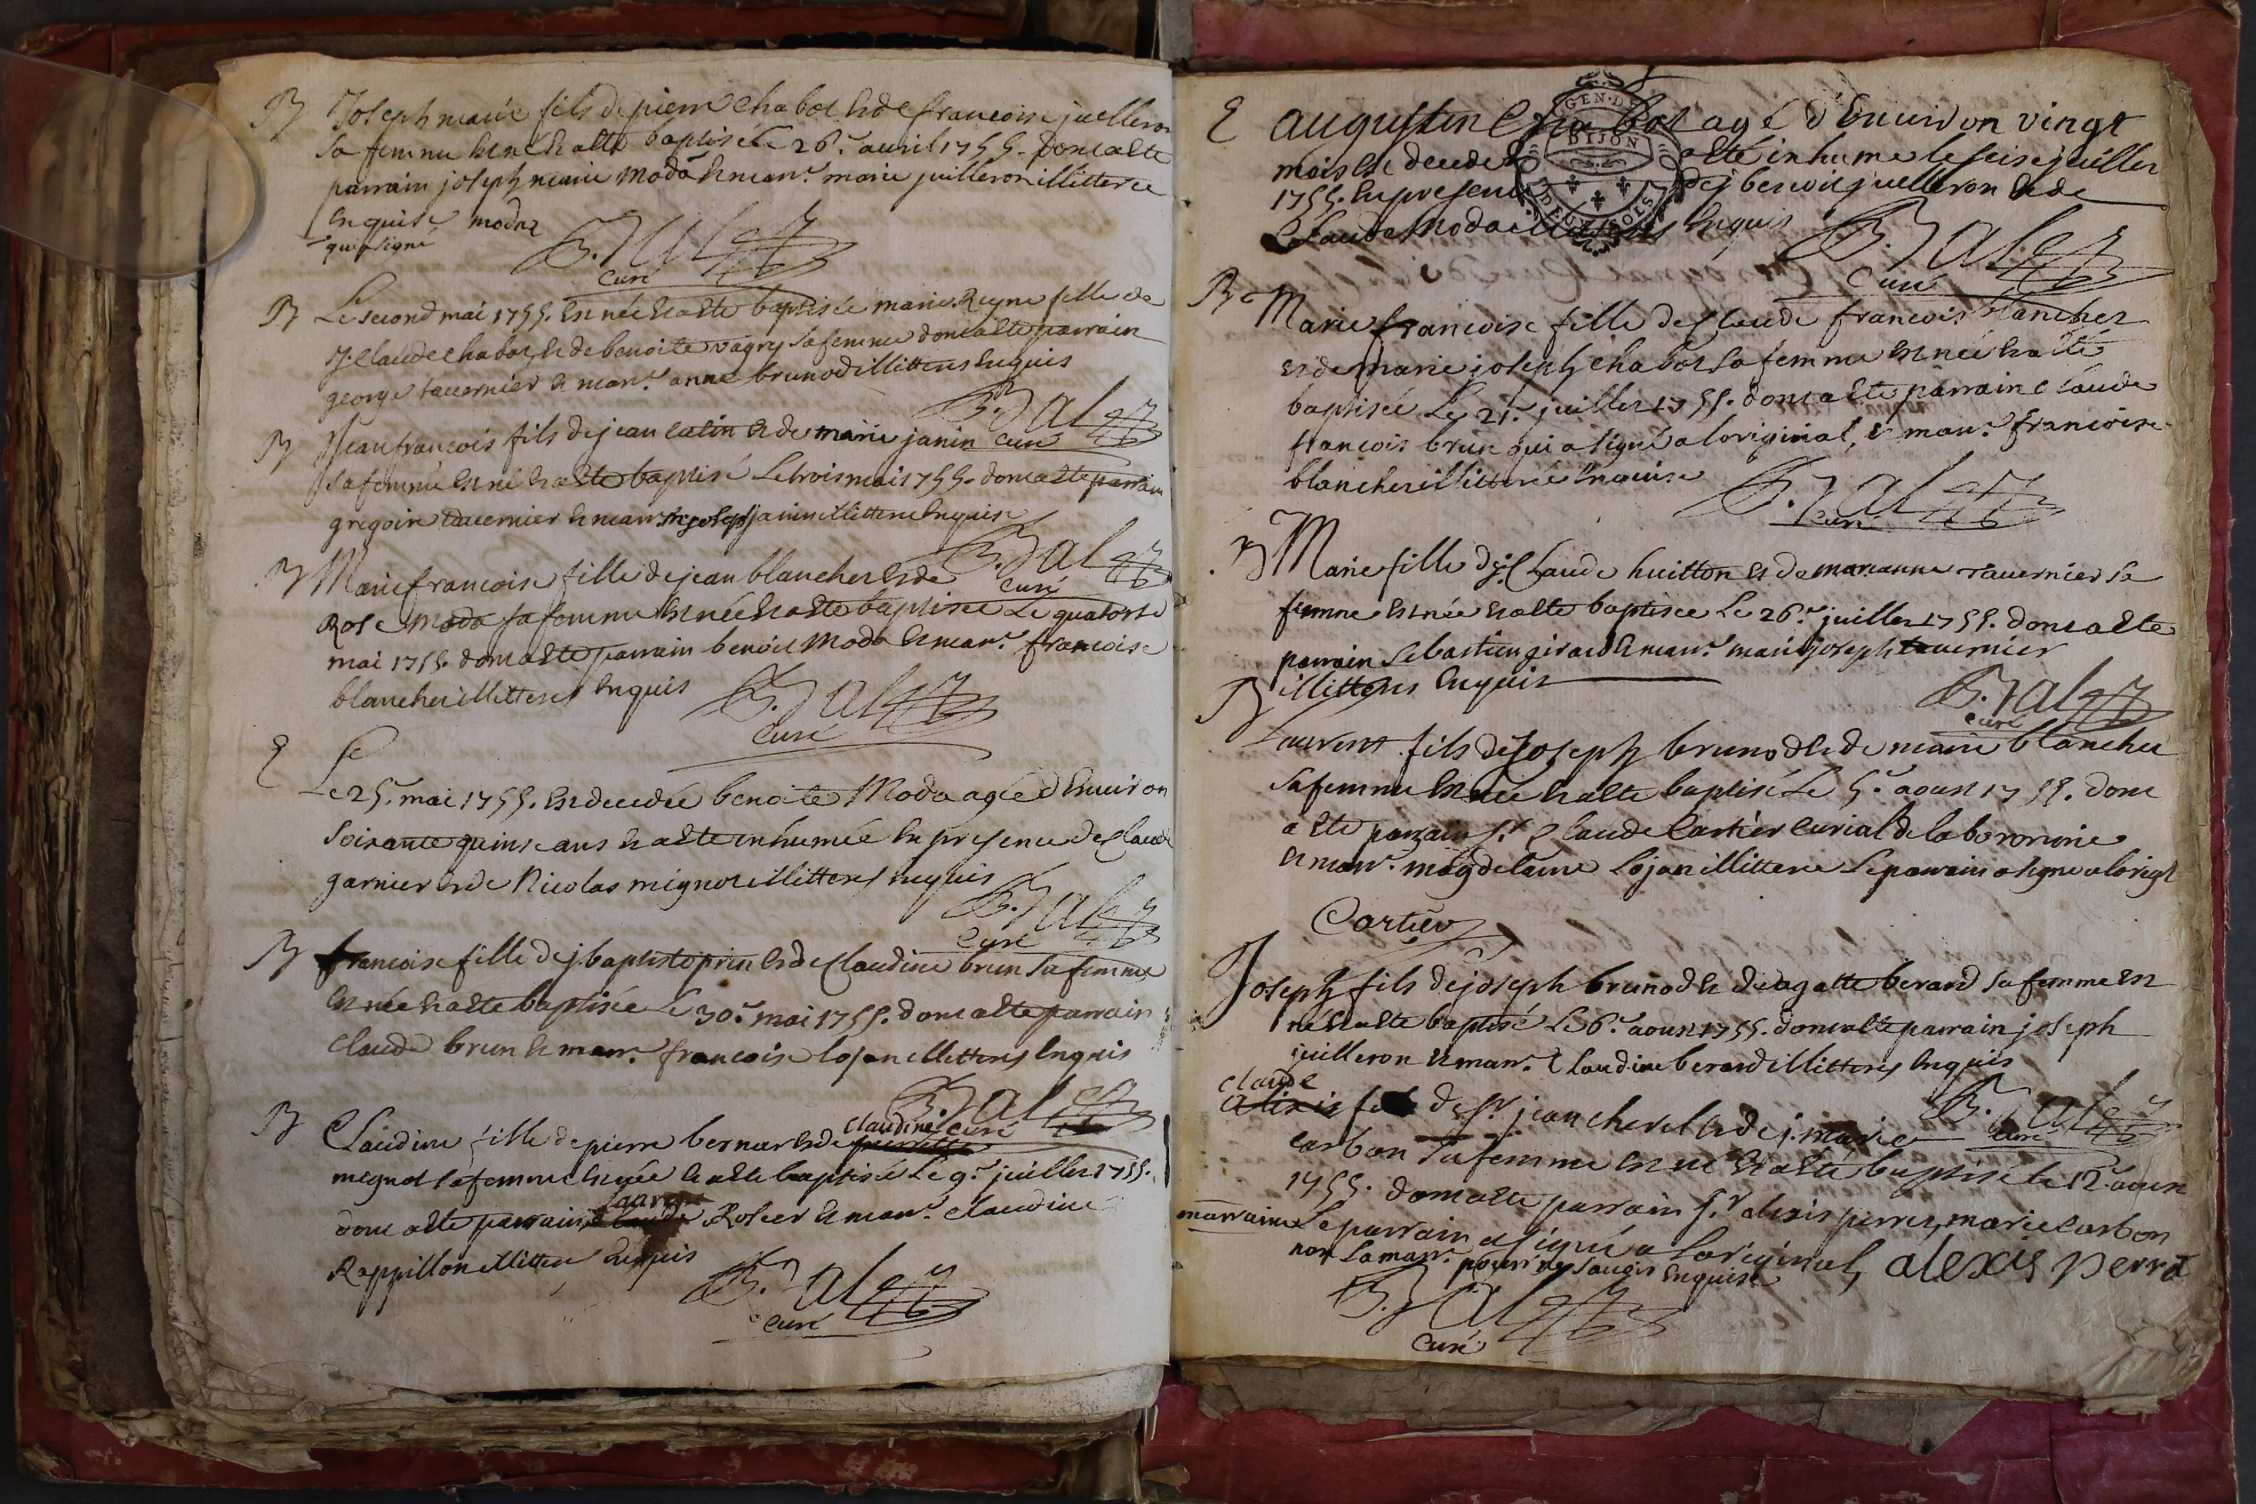 B Joseph marie fils de pierre Chabot et de francoise juilleron
sa femme est né et a été baptisé le 26e. avril 1755. dont a été
parrain joseph marie Moda et marr.e marie juilleron illitterée
enquise moda
qui a signé
B. Jal
Curé
B Le second mai 1755. est née et a été baptisée marie Reyne fille de
j. Claude Chabot et de benoite vagry sa femme dont a été parrain
george tavernier et marr.e anne brunod illitterés enquis
B. Jal
B Jean francois fils de jean Catin et de marie janin curé
sa femme est né et a été baptisé Le trois mai 1755. dont a été parrain
gregoire tavernier et marr.e josep janin illitterés enquis
B. Jal
B Marie francoise fille de jean blanchet et de curé
Rose Moda sa femme est née et a été baptisée Le quatorse
mai 1755. dont a été parrain benoit Moda et marr.e francoise
blanchet illitterés enquis B. Jal
Curé
E Le
Le 25e. mai 1755. est decedée benoite Moda agée d'environ
soixante quinse ans et a été inhumée en presence de Claude
garnier et de Nicolas mignot illitterés enquis
B. Jal
Curé
B francoise fille de j. baptiste prin et de Claudine brun sa femme
est née et a été baptisée Le 30e. mai 1755. dont a été parrain
Claude brun et marr.e francoise lojan illitterés enquis
B. Jal
claudine curé
B Claudine fille de pierre bernar et de pierrette
mignot sa femme est née et a été baptisée Le 9e. juillet 1755.
dont a été parrain Rosier et marr.e Claudine
Rappillon illitterés enquis
B. Jal
curé
GEN. DE
DIJON
DEUX SOLS
E augustin Chabot agé d'Environ vingt
mois est decedé et a été inhumé le seise juillet
1755. en presence de j benoit juilleron et de
Claude Moda illitterés enquis B. Jal
Curé
B Marie francoise fille de Claude francois blanchet
et de marie joseph Chabot sa femme est née et a été
baptisée Le 21e. juillet 1755. dont a été parrain Claude
francois brun qui a signé a loriginal, et marr.e francoise
blanchet illitterée enquise B. Jal
curé
B Marie fille de j. Claude huitton et de marianne tavernier sa
femme est née et a été baptisée Le 26e. juillet 1755. dont a été
parrain sebastien girard et marr.e marie joseph tavernier
illitterés enquis B. Jal
B curé
Laurent fils de joseph brunod et de marie blanchet
sa femme est né et a été baptisé Le 5e. aoust 1755. dont
a été parrain sr. Claude Cartier curial de la
et marr.e magdelaine Lojan illitterée Le parrain a signé a lorigl
Cartier
Joseph fils de joseph brunod et de agatte berard sa femme est
né et a été baptisé Le 6e. aoust 1755. dont a été parrain joseph
juilleron et marr.e Claudine berard illitterés enquis
claude B. Jal
alixis fils de sr. jean et de j. marie curé
carbon sa femme est né et a été baptisé le 12e aoust
1755. dont a été parrain sr alexis perret, marie carbon
marraine Le parrain a signé a Loriginal, alexis perret
non La marr.e pour ne savoir enquise
B. Jal
Curé